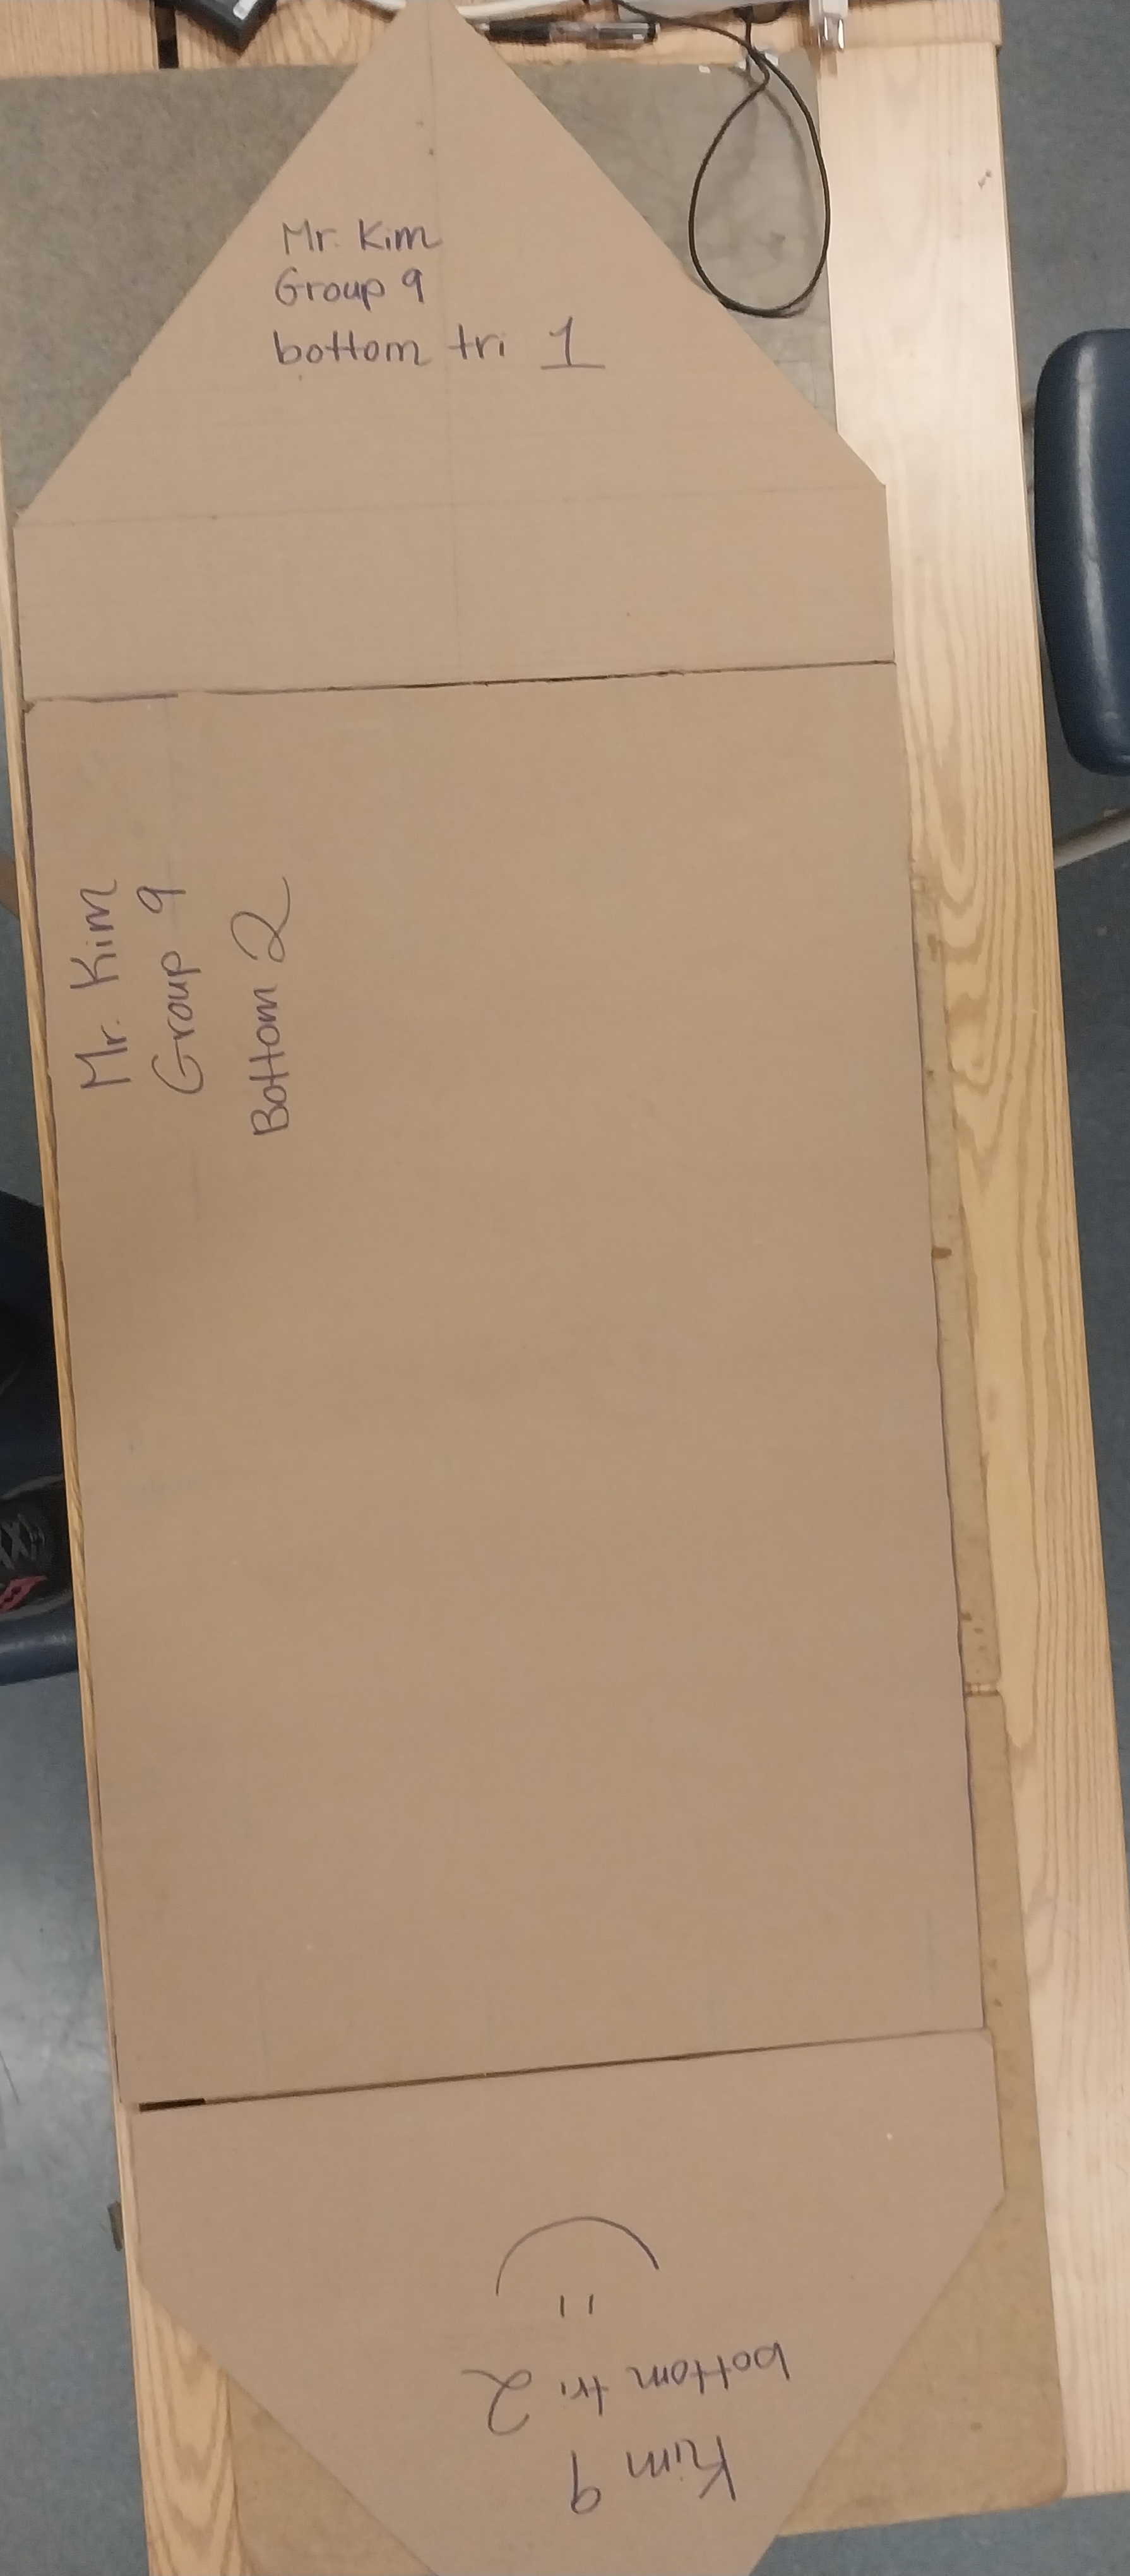 Mr. Kim
Group 9
bottom tri 1
Mr. Kim
Group 9
Bottom 2
Kim 9
bottom tri 2